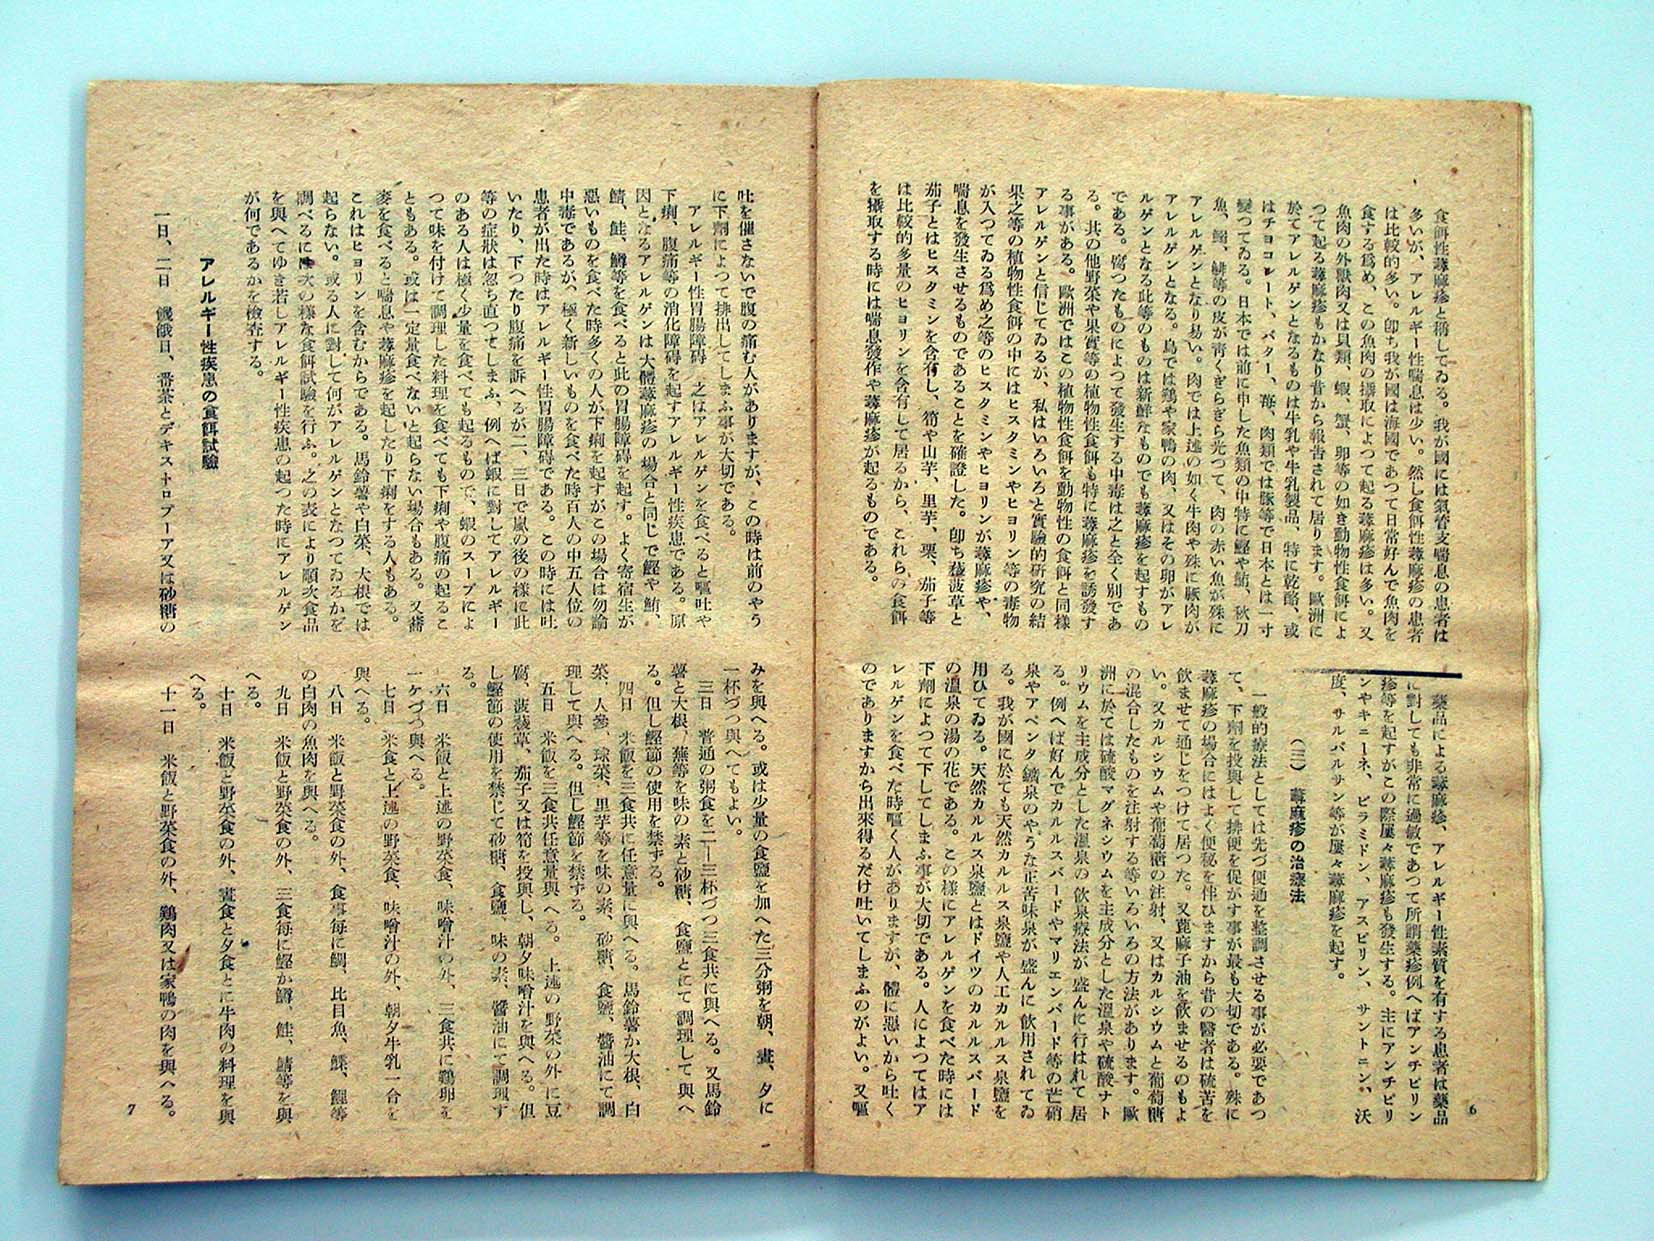 食餌性蕁麻疹と稱してゐる。我が國には氣管支喘息の患者は
多いが、アレルギー性喘息は少い。然し食餌性蕁麻疹の患者
は比較的多い。卽ち我が國は海國であつて日常好んで魚肉を
食する爲め、この魚肉の攝取によつて起る蕁麻疹は多い。又
魚肉の外獸肉又は貝類、蝦、蟹、卵等の如き動物性食餌によ
つて起る蕁麻疹もかなり昔から報吿されて居ります。歐洲に
於てアレルゲンとなるものは牛乳や牛乳製品、特に乾酪、或
はチョコレート、バター、苺、肉類では豚等で日本とは一寸
變つてゐる。日本では前に申した魚類の中特に鰹や鮪、秋刀
魚、鰯、鯖等の皮が靑くぎらぎら光つて、肉の赤い魚が殊に
アレルゲンとなり易い。肉では上述の如く牛肉や殊に豚肉が
アレルゲンとなる。鳥では鷄や家鴨の肉、又はその卵がアレ
ルゲンとなる此等のものは新鮮なものでも蕁麻疹を起すもの
である。腐つたものによつて發生する中毒は之と全く別であ
る。共の他野菜や果實等の植物性食餌も特に蕁麻疹を誘發す
る事がある。歐洲ではこの植物性食餌を動物性の食餌と同樣
アレルゲンと信じてゐるが、私はいろいろと實驗的硏究の結
果之等の植物性食餌の中にはヒスタミンやヒヨリン等の毒物
が入つてゐる爲め之等のヒスタミンやヒヨリンが蕁麻疹や、
喘息を發生させるものであることを確證した。卽ち菠薐草と
茄子とはヒスタミンを含有し、筍や山芋、里芋、栗、茄子等
は比較的多量のヒヨリンを含有して居るから、これらの食餌
を攝取する時には喘息發作や蕁麻疹が起るものである。
藥品による蕁麻疹、アレルギー性素質を有する患者は藥品
に對しても非常に過敏であつて所謂藥疹例へばアンチピリン
疹等を起すがこの際屢々蕁麻疹も發生する。主にアンチピリ
ンやキニーネ、ピラミドン、アスピリン、サントニン、沃
度、サルバルサン等が屢々蕁麻疹を起す。
（三）　蕁麻疹の治療法
一般的療法としては先づ便通を整調させる事が必要であつ
て、下劑を投與して排便を促がす事が最も大切である。殊に
蕁麻疹の場合にはよく便秘を伴ひますから昔の醫者は硫苦を
飮ませて通じをつけて居つた。又蓖麻子油を飮ませるのもよ
い。又カルシウムや葡萄糖の注射、又はカルシウムと葡萄糖
の混合したものを注射する等いろいろの方法があります。歐
洲に於ては硫酸マグネシウムを主成分とした溫泉や硫酸ナト
リウムを主成分とした溫泉の飮泉療法が盛んに行はれて居
る。例へば好んでカルルスバードやマリエンバード等の芒硝
泉やアペンタ鑛泉のやうな正苦味泉が盛んに飮用されてゐ
る。我が國に於ても天然カルルス泉鹽や人工カルルス泉鹽を
用ひてゐる。天然カルルス泉鹽とはドイツのカルルスバード
の溫泉の湯の花である。この樣にアレルゲンを食べた時には
下劑によつて下してしまふ事が大切である。人によつてはア
レルゲンを食べた時嘔く人がありますが、體に惡いから吐く
のでありますから出來得るだけ吐いてしまふのがよい。又嘔
6
吐を催さないで腹の痛む人がありますが、この時は前のやう
に下劑によつて排出してしまふ事が大切である。
アレルギー性胃腸障碍　之はアレルゲンを食べると嘔吐や
下痢、腹痛等の消化障碍を起すアレルギー性疾患である。原
因となるアレルゲンは大體蕁麻疹の場合と同じで鰹や鮪、
鯖、鮭、鱒等を食べると此の胃腸障碍を起す。よく寄宿生が
惡いものを食べた時多くの人が下痢を起すがこの場合は勿論
中毒であるが、極く新しいものを食べた時百人の中五人位の
患者が出た時はアレルギー性胃腸障碍である。この時には吐
いたり、下つたり腹痛を訴へるが二、三日で嵐の後の樣に此
等の症狀は忽ち直つてしまふ、例へば蝦に對してアレルギー
のある人は極く少量を食べても起るもので、蝦のスープによ
つて味を付けて調理した料理を食べても下痢や腹痛の起るこ
ともある。或は一定量食べないと起らない場合もある。又蕎
麥を食べると喘息や蕁麻疹を起したり下痢をする人もある。
これはヒヨリンを含むからである。馬鈴薯や白菜、大根では
起らない。或る人に對して何がアレルゲンとなつてゐるかを
調べるには次の樣な食餌試驗を行ふ。之の表により順次食品
を與へてゆき若しアレルギー性疾患の起つた時にアレルゲン
が何であるかを檢査する。
アレルギー性疾患の食餌試驗
一日、二日　饑餓日、番茶とデキストロプーア又は砂糖の
みを與へる。或は少量の食鹽を加へた三分粥を朝、晝、夕に
一杯づつ與へてもよい。
三日　普通の粥食を二―三杯づつ三食共に與へる。又馬鈴
薯と大根、蕪等を味の素と砂糖、食鹽とにて調理して與へ
る。但し鰹節の使用を禁ずる。
四日　米飯を三食共に任意量に與へる。馬鈴薯か大根、白
菜、人參、球菜、里芋等を味の素、砂糖、食鹽、醬油にて調
理して與へる。但し鰹節を禁ずる。
五日　米飯を三食共任意量與へる。上述の野菜の外に豆
腐、菠薐草、茄子又は筍を投與し、朝夕味噌汁を與へる。但
し鰹節の使用を禁じて砂糖、食鹽、味の素、醬油にて調理す
る。
六日　米飯と上述の野菜食、味噌汁の外、三食共に鷄卵を
一ケづつ與へる。
七日　米食と上述の野菜食、味噌汁の外、朝夕牛乳一合を
與へる。
八日　米飯と野菜食の外、食事每に鯛、比目魚、鰈、鱧等
の白肉の魚肉を與へる。
九日　米飯と野菜食の外、三食每に鰹か鱒、鮭、鯖等を與
へる。
十日　米飯と野菜食の外、晝食と夕食とに牛肉の料理を與
へる。
十一日　米飯と野菜食の外、鷄肉又は家鴨の肉を與へる。
7